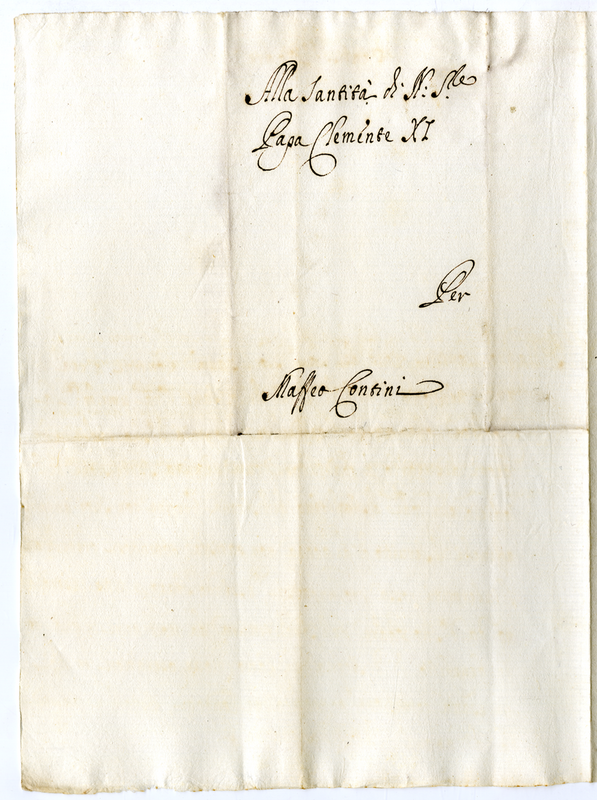 Alla Santità di N: S.re
Papa Clemente XI
Per
Maffeo Contini